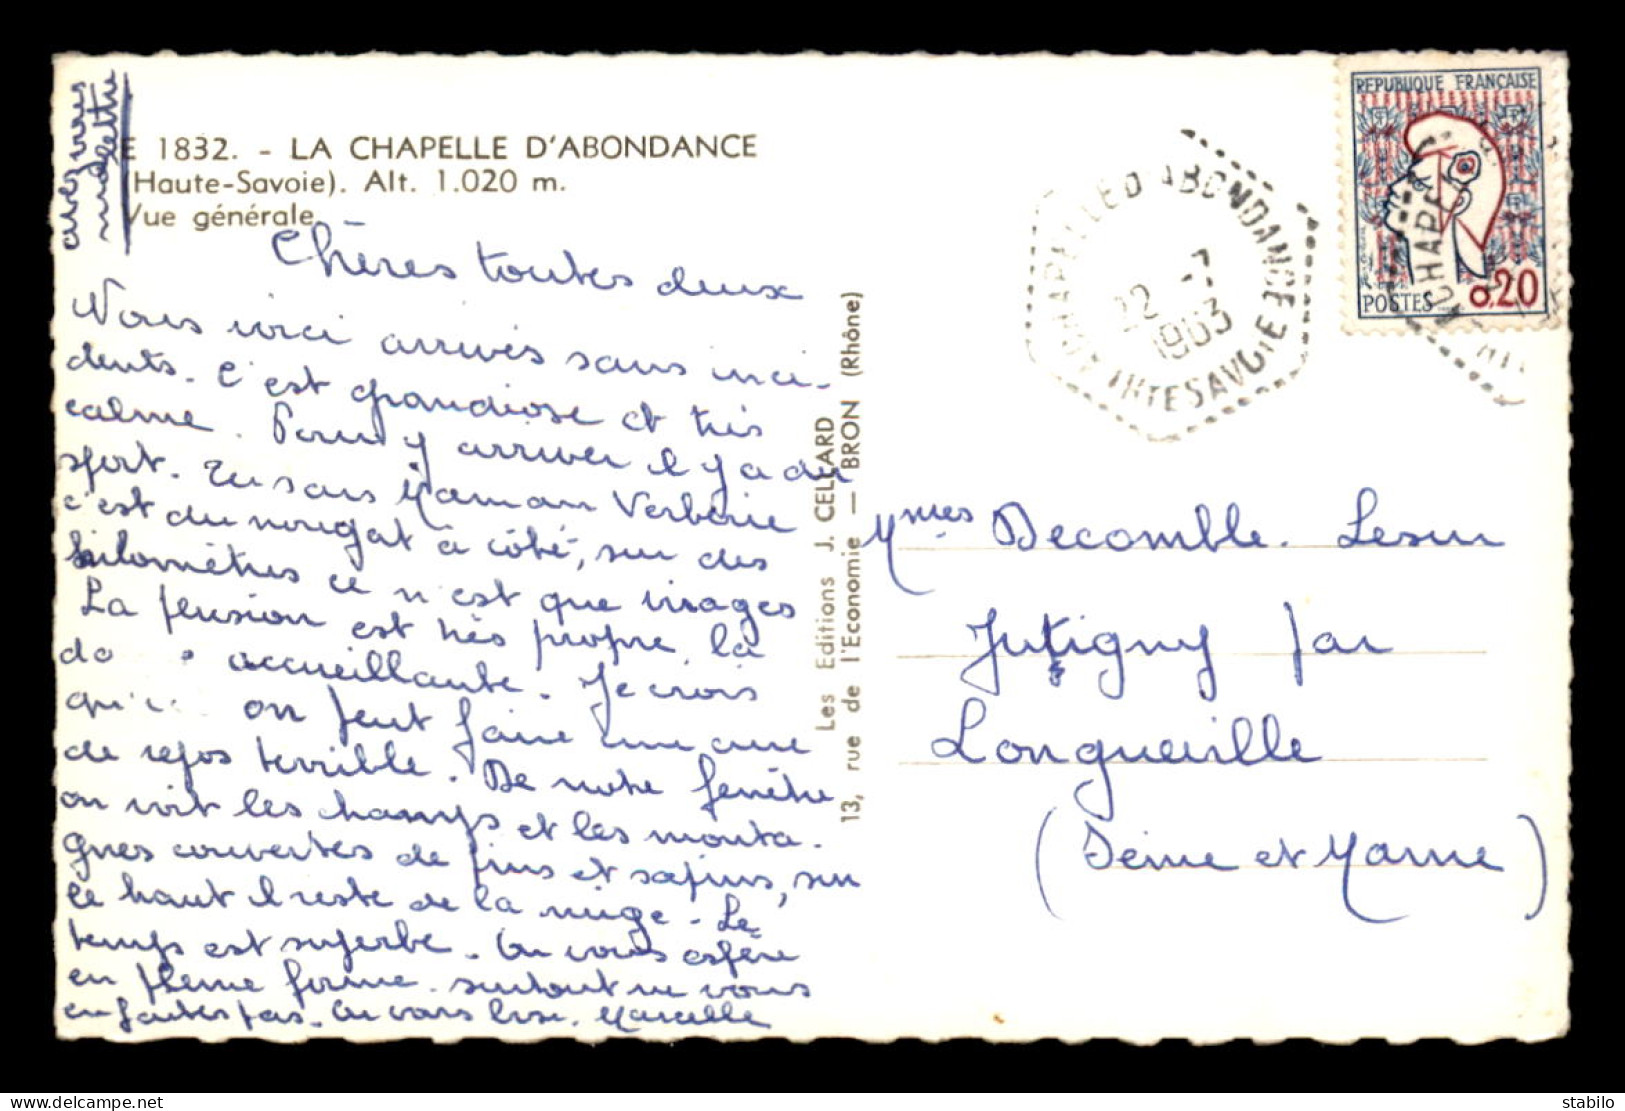 E 1832. - LA CHAPELLE D'ABONDANCE
(Haute-Savoie). Alt. 1.020 m.
Vue générale.
Chères toutes deux
Nous voici arrivés sans inci-
dents. C'est grandiose et très
calme. Pour y arriver il y a du
sport. Tu sais Maman Verberie
c'est du nougat à côté, sur des
kilomètres ce n'est que virages
La pension est très propre, la
accueillante. Je crois
on peut faire une cure
de repos terrible. De notre fenêtre
on voit les champs et les monta.
gnes couvertes de pins et sapins, sur
le haut il reste de la neige - Le
temps est superbe. On vous espère
en pleine forme. surtout ne vous
en faites pas. On vous bise. Marcelle
avez vous
ma lettre
Les Editions J. CELLARD
13, rue de l'Economie — BRON (Rhône)
CHAPELLE D'ABONDANCE
22 -7
1963
HTE SAVOIE
REPUBLIQUE FRANÇAISE
POSTES 0.20
CHAPE
Mmes Decomble. Lesur
Jutigny par
Longueville
(Seine et Marne)
delcampe.net
stabilo